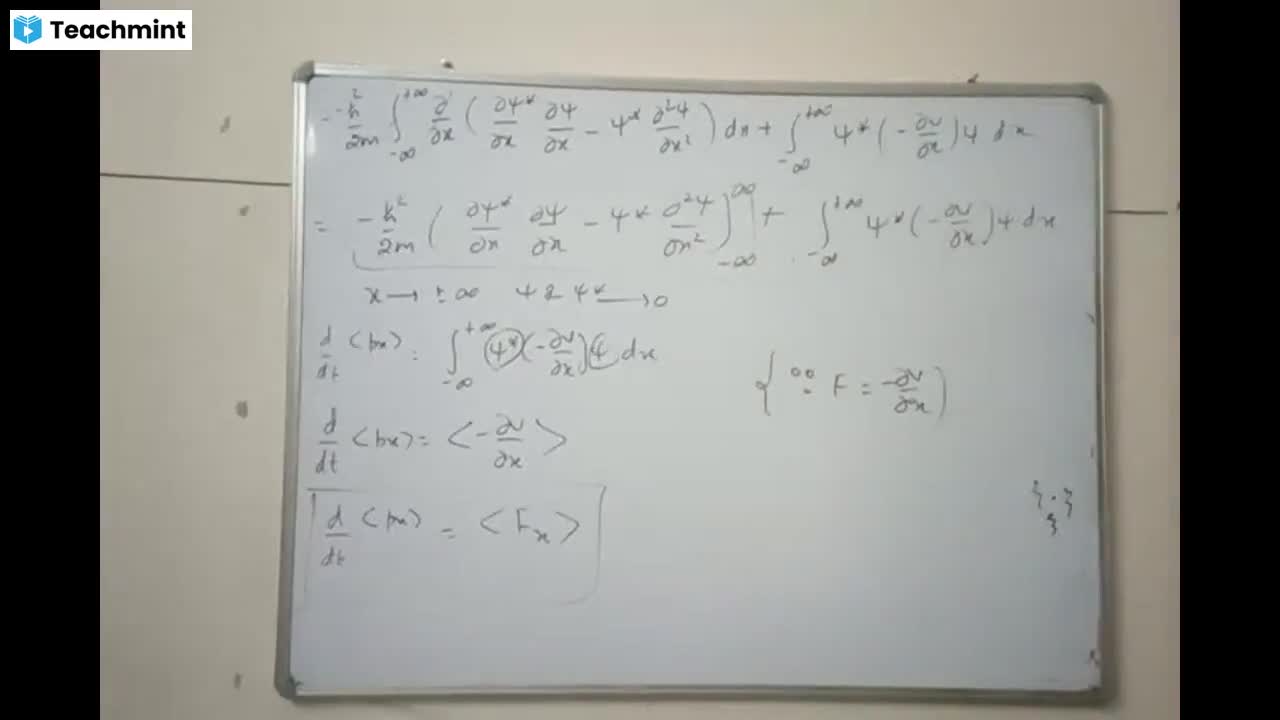 Teachmint
= -ħ²/2m ∫_{-∞}^{+∞} ∂/∂x ( ∂ψ*/∂x ∂ψ/∂x - ψ* ∂²ψ/∂x² ) dx + ∫_{-∞}^{+∞} ψ* (-∂V/∂x) ψ dx
= -ħ²/2m ( ∂ψ*/∂x ∂ψ/∂x - ψ* ∂²ψ/∂x² )_{-∞}^{∞} + ∫_{-∞}^{+∞} ψ* (-∂V/∂x) ψ dx
x → ±∞ ψ & ψ* → 0
d/dt <px> = ∫_{-∞}^{+∞} ψ* (-∂V/∂x) ψ dx
{ ∵ F = -∂V/∂x }
d/dt <px> = < -∂V/∂x >
d/dt <px> = < Fx >